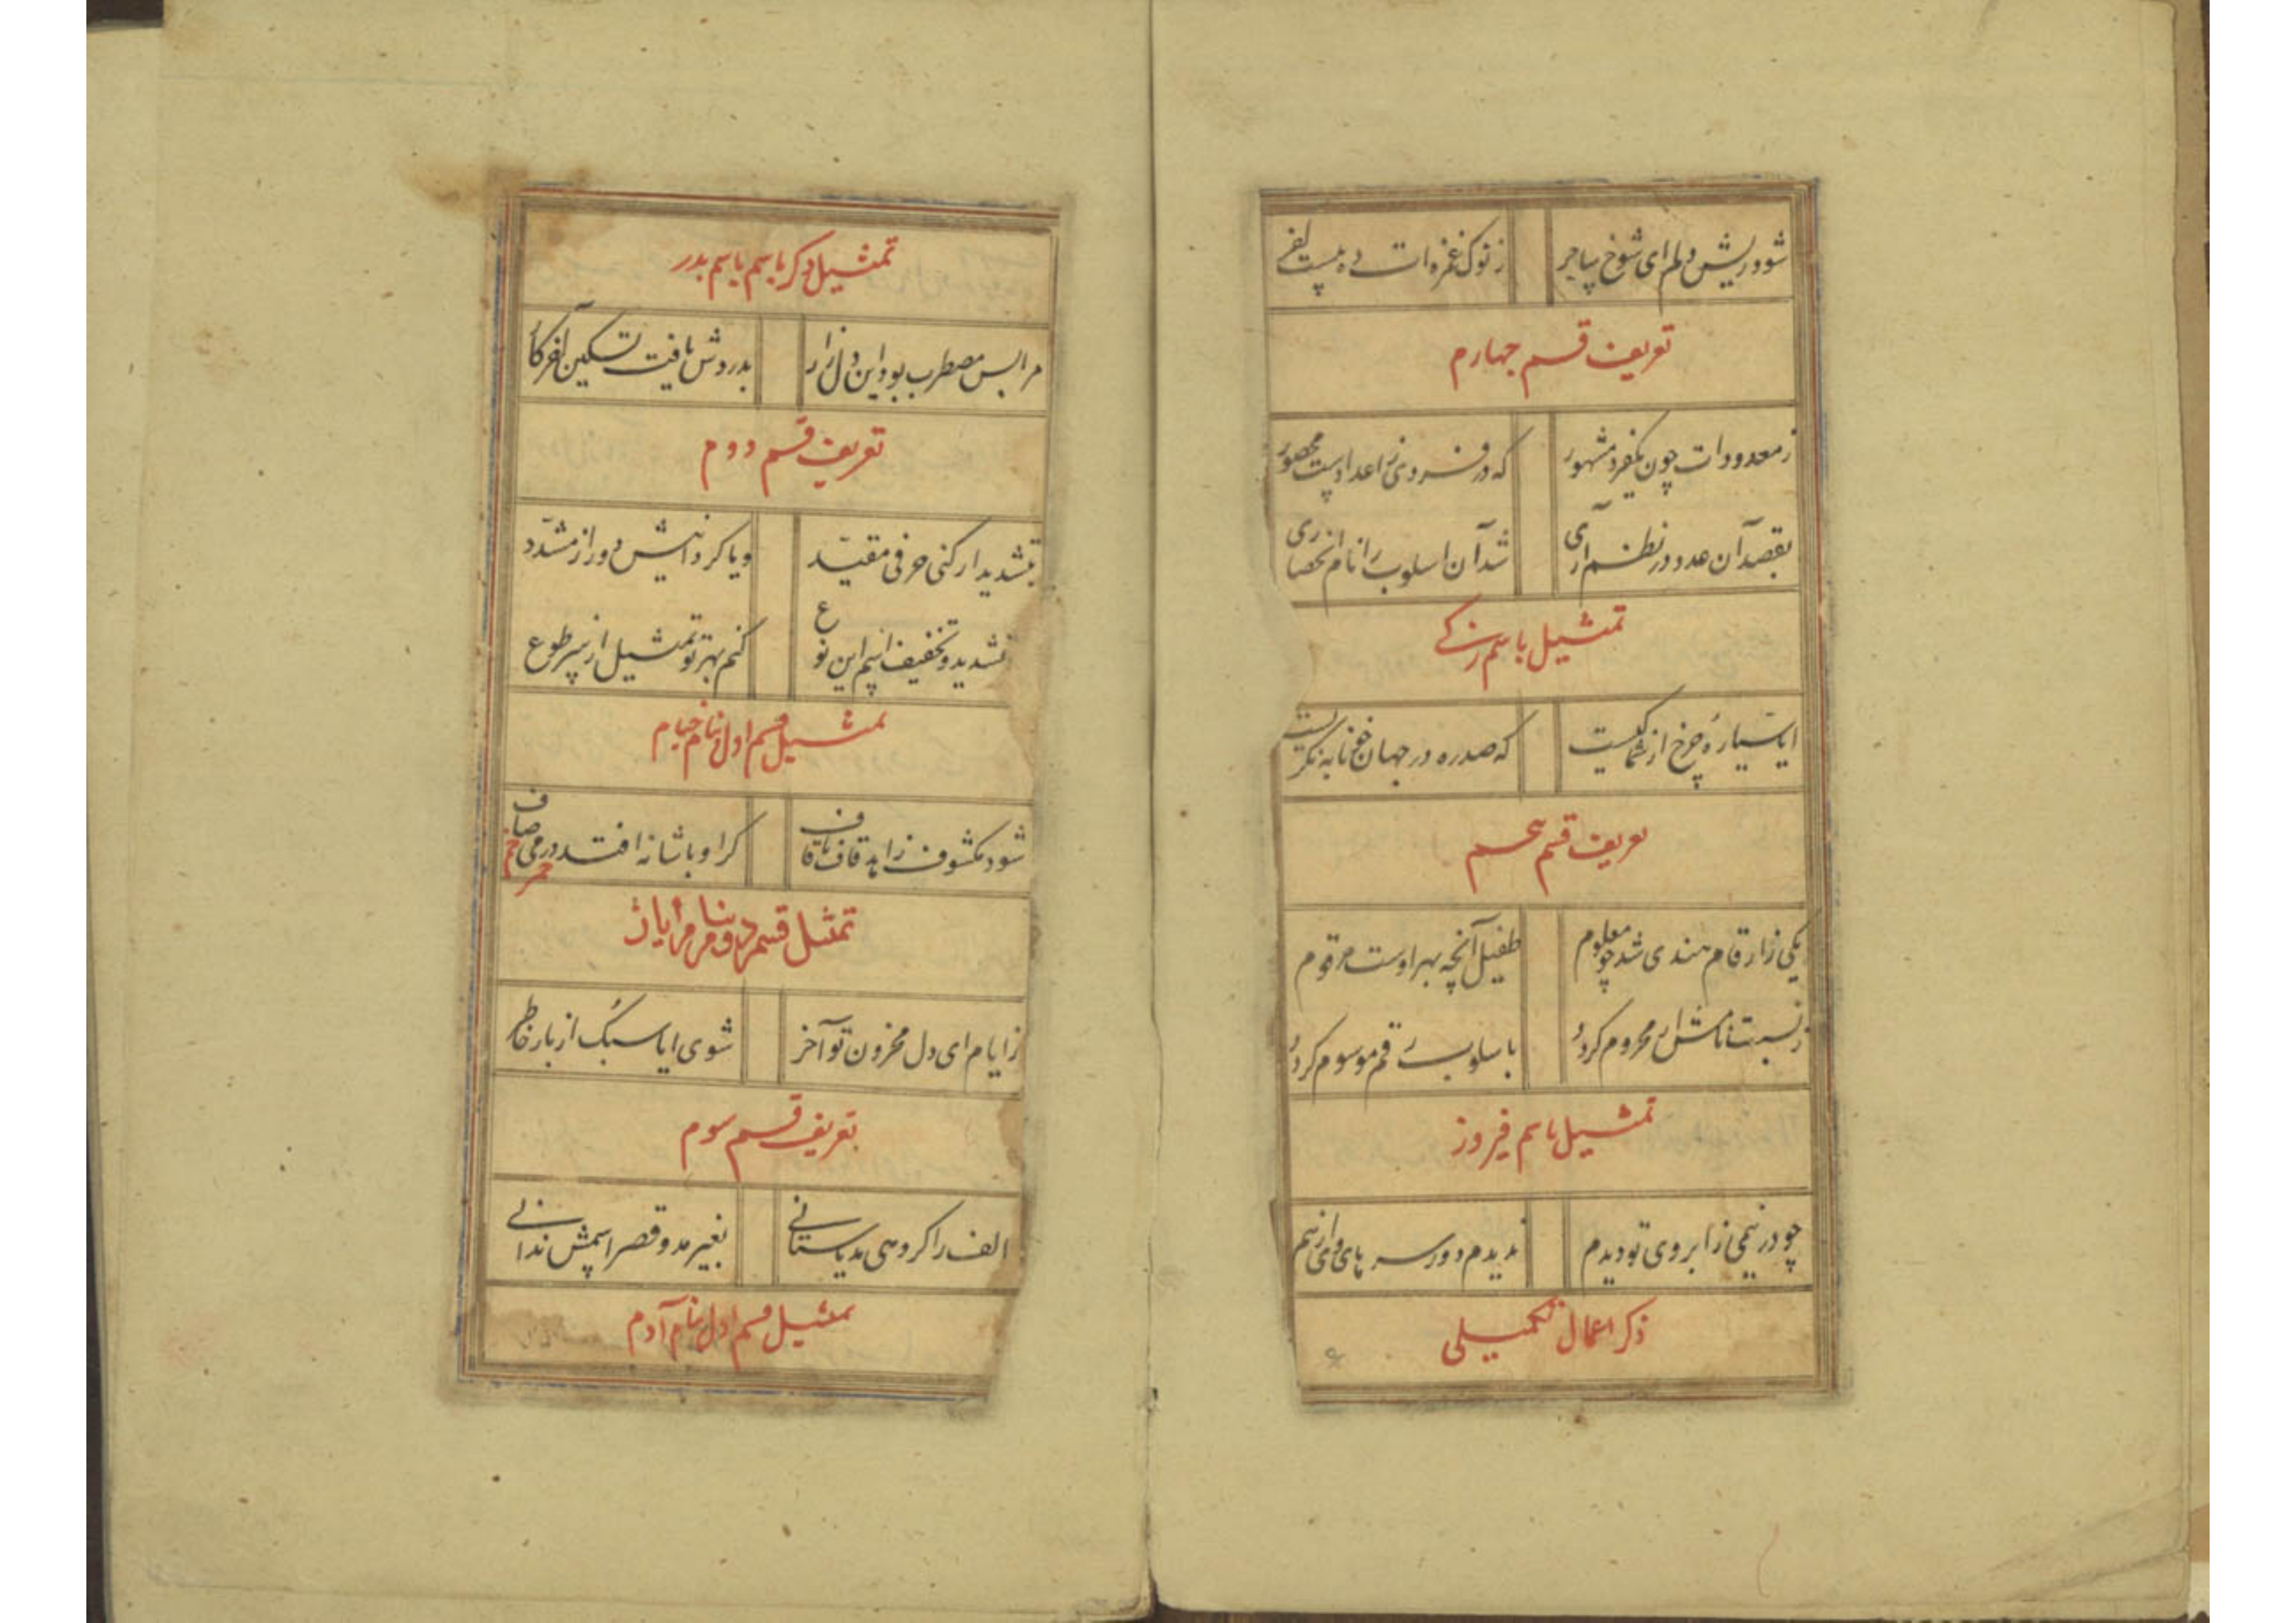 شود ریش دلم ای شوخ پیاجر
ز نوک غمزه ات ده بیست
تعریف قسم چهارم
ز معدودات چون یکفرد مشهور
که در فردی ز اعدادست محصور
بقصد آن عدد در نظم آری
شد آن اسلوب را نام انحصاری
تمثیل باسم زکے
ایا سیارهٔ چرخ از شما کیست
که صد ره در جهان خونابه نگریست
تعریف قسم پنجم
یکی ز ارقام هندی شد چو معلوم
طفیل آنچه بهر اوست مرقوم
ز نسبت نامش ار محروم کردد
باسلوب رقم موسوم کردد
تمثیل باسم فیروز
چو در نیمی ز ابروی تو دیدم
ندیدم دور سر پای
ذکر اعمال تکمیلی
تمثیل دکر باسم بدر
مرا بس مضطرب بود این دل زار
بدردش یافت تسکین آخر کار
تعریف قسم دوم
بتشدید ار کنی حرفی مقید
و یا کردانیش دور از مشدد
تشدید و تخفیف اسم این نوع
کنم بهر تو تمثیل از سر طوع
تمثیل قسم اول بنام خیام
شود مکشوف زاهد قاف تا قاف
کر او با شانه افتد در می صاف
خم
خمر
تمثیل قسم دوم بنام ایاز
ز ایام ای دل محزون تو آخر
شوی ایا سبک از بار خاطر
تعریف قسم سوم
الف را کر دهی مد یا ستانی
بغیر مد و قصر اسمش ندانی
تمثیل قسم اول بنام آدم